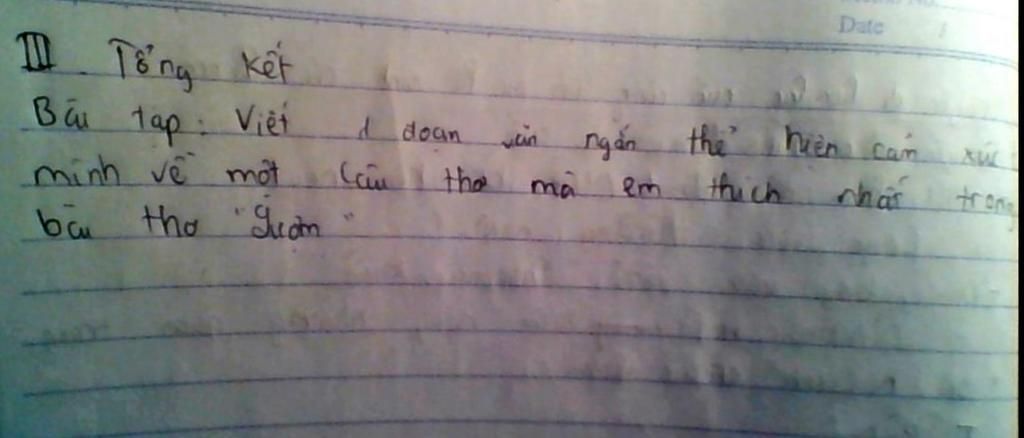 Date /
III. Tổng kết
Bài tập: Viết 1 đoạn văn ngắn thể hiện cảm xúc
mình về một câu thơ mà em thích nhất trong
bài thơ "Gươm"